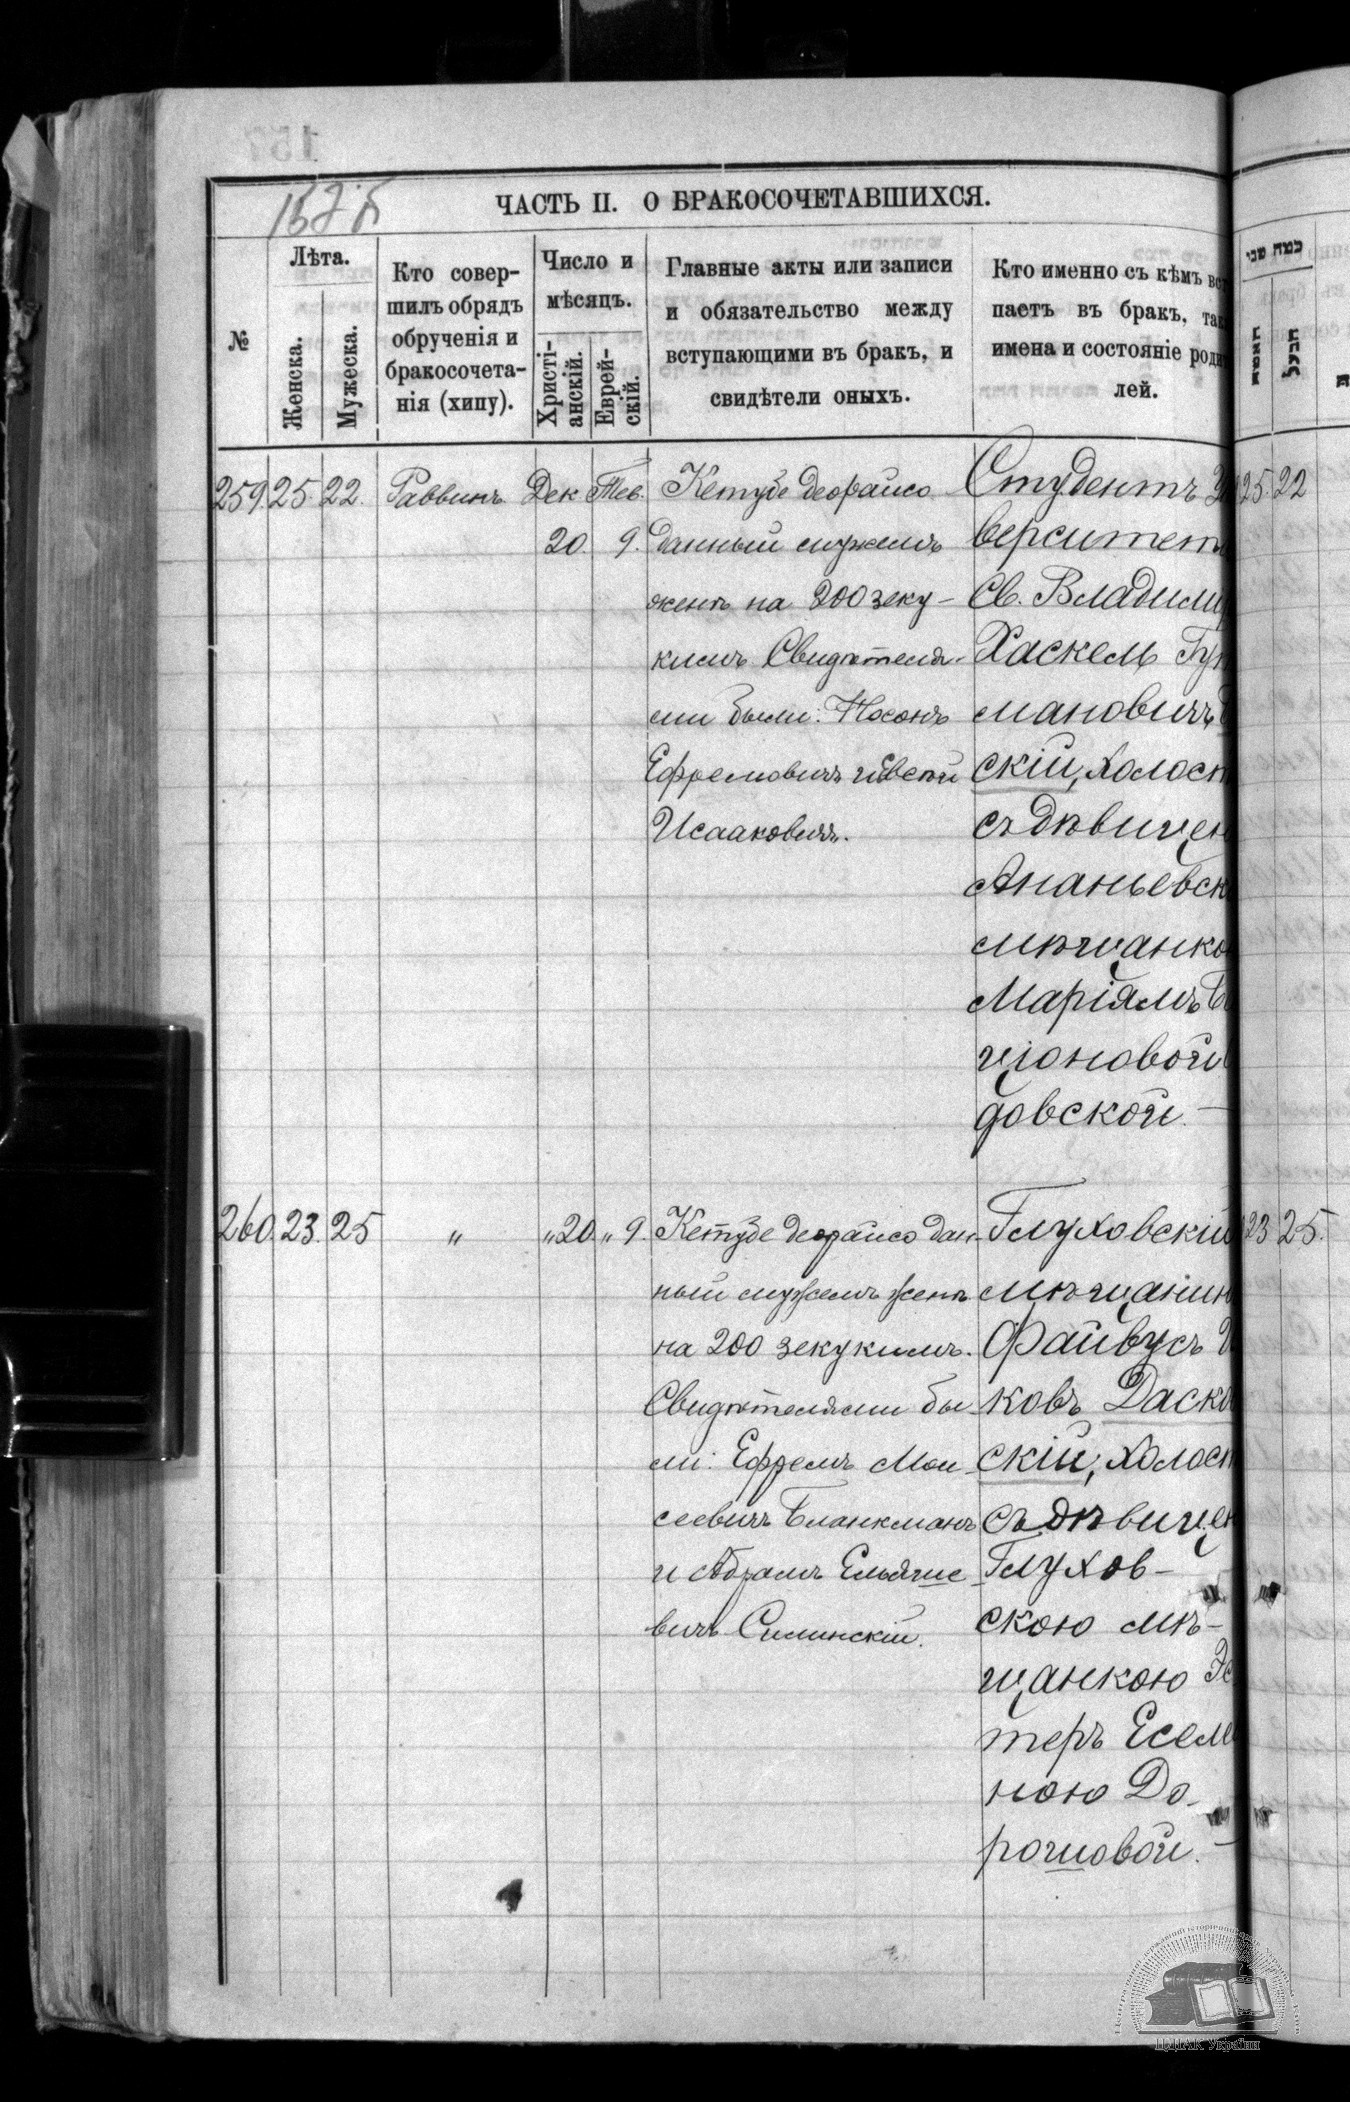 157
ЧАСТЬ II. О БРАКОСОЧЕТАВШИХСЯ.
№
Лѣта.
Женска.
Мужеска.
Кто совер-
шилъ обрядъ
обрученія и
бракосочета-
нія (хипу).
Число и
мѣсяцъ.
Христі-
анскій.
Еврей-
скій.
Главные акты или записи
и обязательство между
вступающими въ бракъ, и
свидѣтели оныхъ.
Кто именно съ кѣмъ вст
паетъ въ бракъ, так
имена и состояніе роди
лей.
כמה שני
259. 25. 22. Раввинъ Дек 20. Тев. 9.
Кетубе деорайсо
данный мужемъ
женѣ на 200 зеку-
кимъ Свидѣтеля-
ми были: Носонъ
Ефремовичъ и Евсей
Исааковичъ.
Студентъ Ун
верситет
Св. Владими
Хаскель
мановичъ
скій, холост
съ дѣвицею
Ананьевск
мѣщанко
Маріямъ
ціоновой
довской. —
25. 22
260. 23. 25 „ „ 20. „ 9.
Кетубе деорайсо дан-
ный мужемъ женѣ
на 200 зекукимъ.
Свидѣтелями бы
ли: Ефремъ Мои-
сеевичъ Бланкманъ
и Абрамъ Ельяше
вичъ Силинскій.
Глуховскій
мѣщанин
Файвусъ И
ковъ Даско
скій, холост
съ дѣвицею
Глухов-
скою мѣ-
щанкою Эс
теръ Есел
ною До-
рошовой. —
23 25.
ЦДІАК України